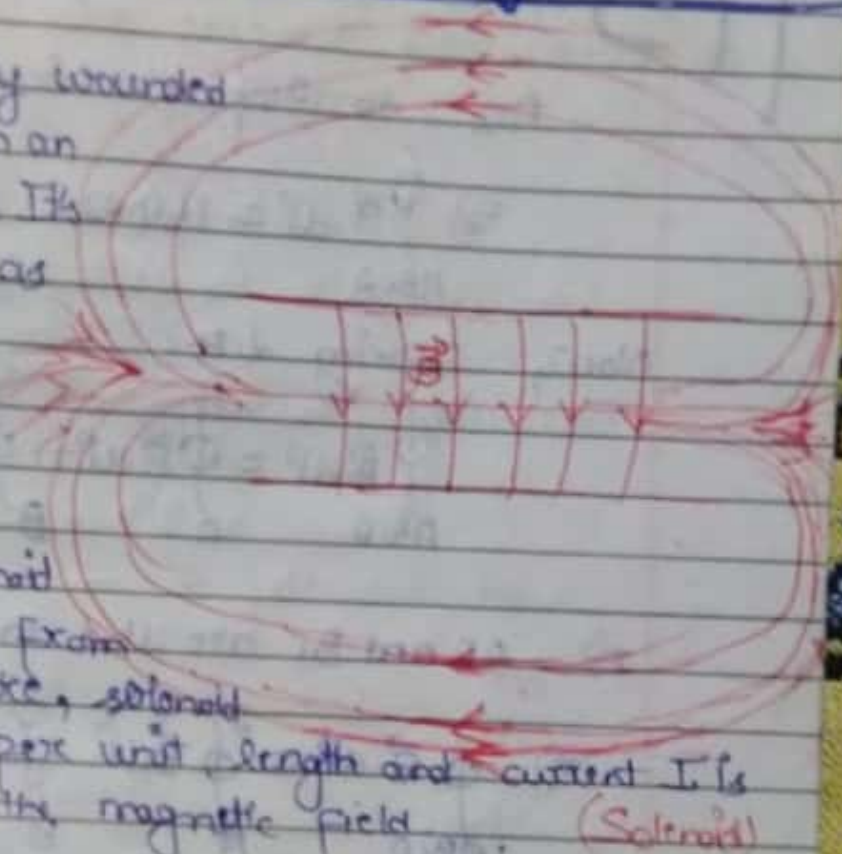 y wounded
n an
. Its
as
B
noid
From
ce, solonoid
per unit length and current I is
the magnetic field
(Solenoid)